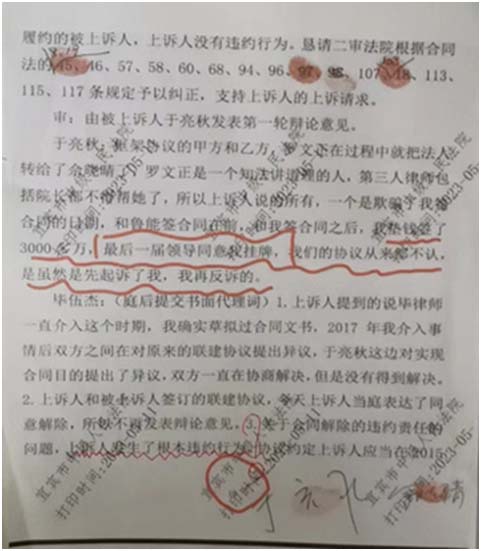 履约的被上诉人，上诉人没有违约行为。恳请二审法院根据合同
法的45、46、57、58、60、68、94、96、97、98、107、113、
115、117条规定予以纠正，支持上诉人的上诉请求。
审：由被上诉人于亮秋发表第一轮辩论意见。
于亮秋：框架协议的甲方和乙方，罗文正在过程中就把法人
转给了佘晓晴了，罗文正是一个知法讲道理的人，第三人律师包
括院长都不得帮她了，所以上诉人说的所有，一个是欺骗了我签
合同的目的，和鲁能签合同在前，和我签合同之后，我垫钱签了
3000多万，最后一届领导同意我挂牌，我们的协议从来都不认，
是虽然是先起诉了我，我再反诉的。
毕伍杰：（庭后提交书面代理词）1.上诉人提到的说毕律师
一直介入这个时期，我确实草拟过合同文书，2017年我介入事
情后双方之间在对原来的联建协议提出异议，于亮秋这边对实现
合同目的提出了异议，双方一直在协商解决，但是没有得到解决。
2.上诉人和被上诉人签订的联建协议，今天上诉人当庭表达了同
意解除，所以不再发表辩论意见。3.关于合同解除的违约责任的
问题，上诉人发生了根本违约行为，协议约定上诉人应当在2015
宜宾市中级人民法院
打印时间:2023-05-11